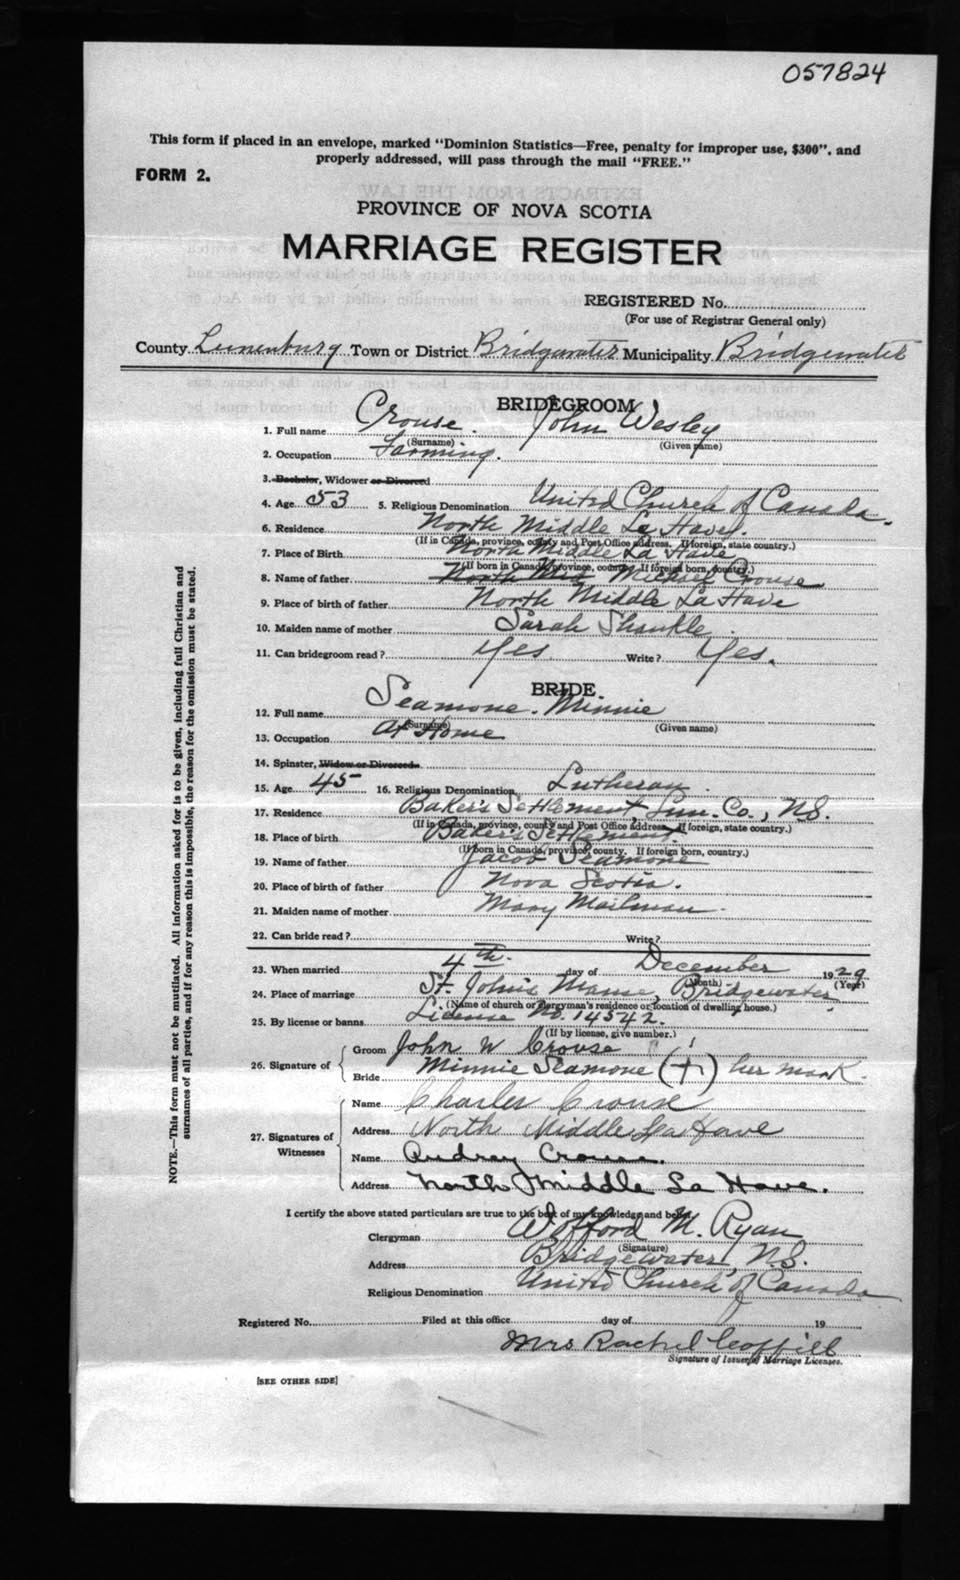 057824
This form if placed in an envelope, marked "Dominion Statistics—Free, penalty for improper use, $300", and
properly addressed, will pass through the mail "FREE."
FORM 2.
PROVINCE OF NOVA SCOTIA
MARRIAGE REGISTER
REGISTERED No.
(For use of Registrar General only)
County Lunenburg Town or District Bridgewater Municipality Bridgewater
BRIDEGROOM
1. Full name Crouse. John Wesley
(Surname) (Given name)
2. Occupation Farming.
3. Bachelor, Widower or Divorced
4. Age 53 5. Religious Denomination United Church of Canada.
6. Residence North Middle La Have.
(If in Canada, province, county and Post Office address. If foreign, state country.)
7. Place of Birth North Middle La Have
(If born in Canada, province, county. If foreign born, country.)
8. Name of father North Mid Michael Crouse
9. Place of birth of father North Middle La Have
10. Maiden name of mother Sarah Shankle.
11. Can bridegroom read? Yes Write? Yes.
BRIDE.
12. Full name Seamone. Minnie
(Surname) (Given name)
13. Occupation At Home
14. Spinster, Widow or Divorcee
15. Age 45 16. Religious Denomination Lutheran.
17. Residence Baker's Settlement, Lun. Co., N.S.
(If in Canada, province, county and Post Office address. If foreign, state country.)
18. Place of birth Baker's Settlement
(If born in Canada, province, county. If foreign born, country.)
19. Name of father Jacob Seamone
20. Place of birth of father Nova Scotia.
21. Maiden name of mother Mary Mailman.
22. Can bride read? Write?
23. When married 4th. day of December 1929
(Month) (Year)
24. Place of marriage St. John's Manse, Bridgewater
(Name of church or clergyman's residence or location of dwelling house.)
25. By license or banns License No. 14542.
(If by license, give number.)
26. Signature of
Groom John W Crouse
Bride Minnie Seamone (+) her mark.
27. Signatures of Witnesses
Name Charles Crouse
Address North Middle La Have
Name Audrey Crouse.
Address North Middle La Have.
I certify the above stated particulars are true to the best of my knowledge and belief.
Clergyman Wofford M. Ryan
(Signature)
Address Bridgewater, N.S.
Religious Denomination United Church of Canada
Registered No. Filed at this office day of 19
Mrs Rachel
Signature of Issuer of Marriage Licenses.
[SEE OTHER SIDE]
NOTE.—This form must not be mutilated. All information asked for is to be given, including full Christian and
surnames of all parties, and if for any reason this is impossible, the reason for the omission must be stated.